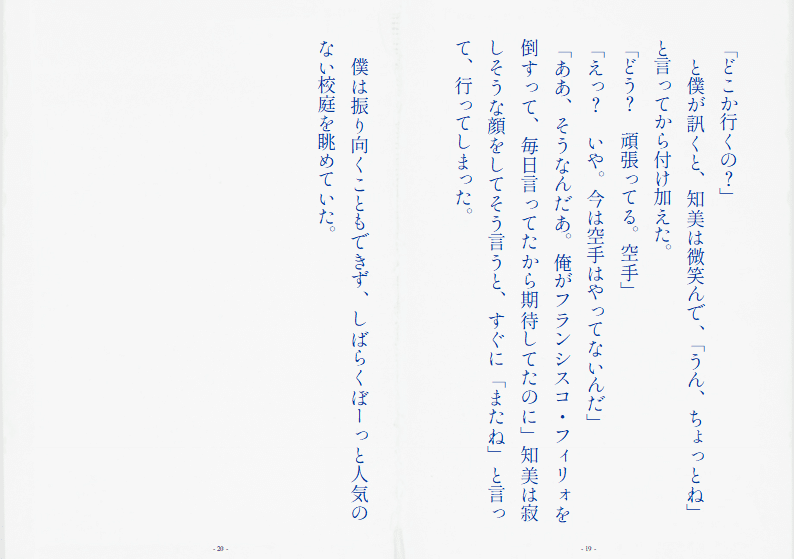 「どこか行くの？」
　と僕が訊くと、知美は微笑んで、「うん、ちょっとね」
と言ってから付け加えた。
「どう？　頑張ってる。空手」
「えっ？　いや。今は空手はやってないんだ」
「ああ、そうなんだあ。俺がフランシスコ・フィリォを
倒すって、毎日言ってたから期待してたのに」知美は寂
しそうな顔をしてそう言うと、すぐに「またね」と言っ
て、行ってしまった。
- 19 -
　僕は振り向くこともできず、しばらくぼーっと人気の
ない校庭を眺めていた。
- 20 -